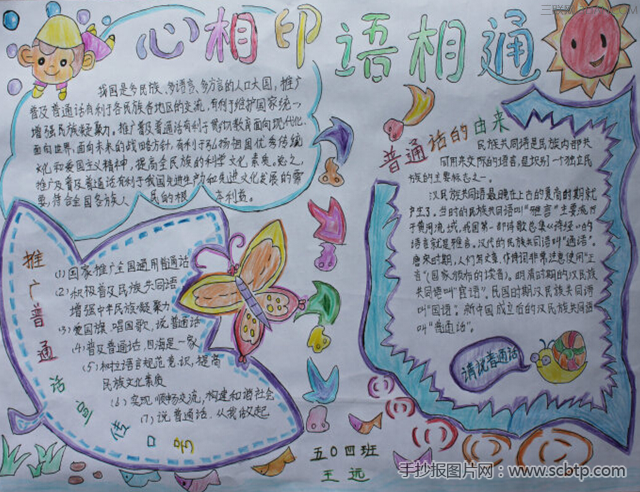 心相印 语相通
我国是多民族、多语言、多方言的人口大国，推广
普及普通话有利于各民族各地区的交流，有利于维护国家统一
增强民族凝聚力。推广普及普通话有利于贯彻教育面向现代化，
面向世界，面向未来的战略方针，有利于弘扬祖国优秀传统
文化和爱国主义精神，提高全民族的科学文化素质。总之，
推广及普及普通话有利于我国先进生产力和先进文化发展的需
要，符合全国各族人民的根本利益。
推广普通话宣传口号
(1) 国家推广全国通用普通话
(2) 积极普及民族共同语
增强中华民族凝聚力
(3) 爱国旗，唱国歌，说普通话
(4) 普及普通话，四海是一家
(5) 树立语言规范意识，提高
民族文化素质
(6) 实现顺畅交流，构建和谐社会
(7) 说普通话，从我做起
普通话的由来
民族共同语是民族内部共
同用来交际的语言，是识别一个独立民
族的主要标志之一。
汉民族共同语最晚在上古的夏商时期就
产生了。当时的民族共同语叫“雅言”主要流行
于黄河流域，我国第一部诗歌总集《诗经》的
语言就是雅言。汉代的民族共同语叫“通语”。
唐宋时期，人们写文章、作诗词非常注意使用“正
音”（国家颁布的读音）。明清时期的汉民族共
同语叫“官语”。民国时期汉民族共同语
叫“国语”。新中国成立后的汉民族共同语
叫“普通话”。
请说普通话
五〇四班
王远
手抄报图片网：www.scbtp.com